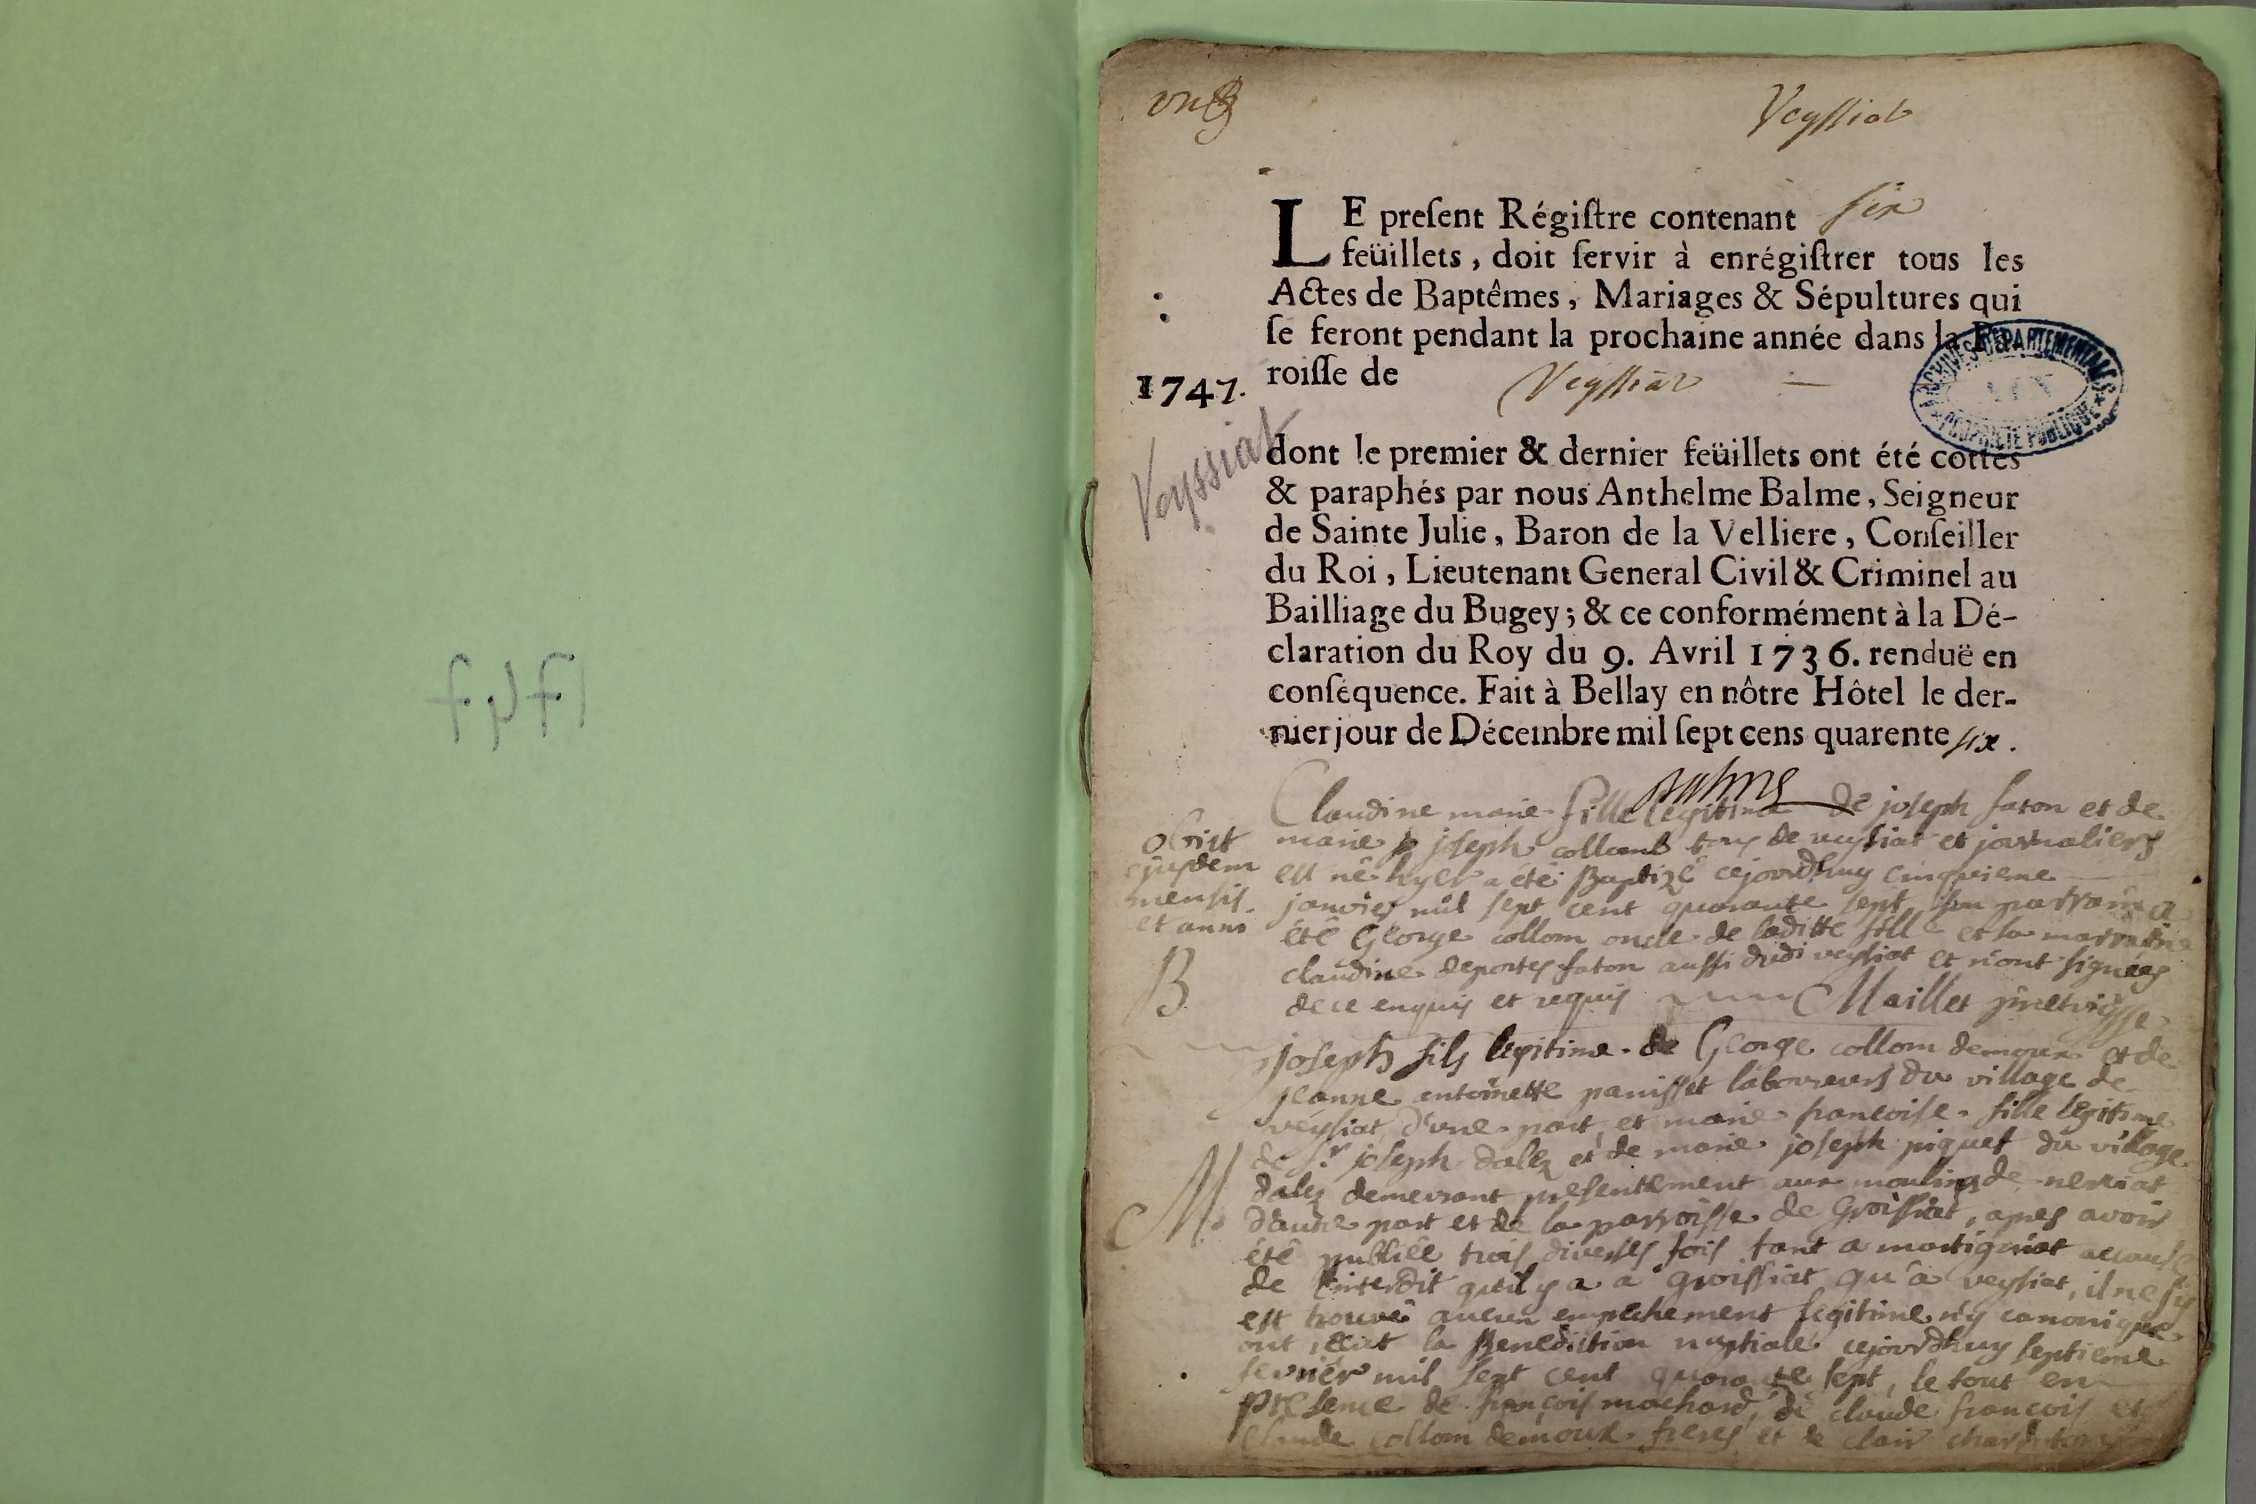 Veyssiat
LE preſent Régiſtre contenant six
feüillets, doit ſervir à enrégiſtrer tous les
Actes de Baptêmes, Mariages & Sépultures qui
ſe feront pendant la prochaine année dans la Pa-
roiſſe de Veyssiat
1747.
Veyssiat
ARCHIVES DEPARTEMENTALES
AIN
PROPRIETE PUBLIQUE
dont le premier & dernier feüillets ont été cottés
& paraphés par nous Anthelme Balme, Seigneur
de Sainte Julie, Baron de la Velliere, Conſeiller
du Roi, Lieutenant General Civil & Criminel au
Bailliage du Bugey; & ce conformément à la Dé-
claration du Roy du 9. Avril 1736. renduë en
conſéquence. Fait à Bellay en nôtre Hôtel le der-
nier jour de Décembre mil ſept cens quarente six.
Balme
obiit
ejusdem
mensis
et anni
B
Claudine marie fille legitime de joseph faton et de
marie joseph collomb tous de veysiat et journaliers
est né hyer a été Baptizé cejourdhuy cinquieme
janvier mil sept cent quarante sept son parrain a
été George collom oncle de laditte fille et la marraine
claudine deportes faton aussi dudi veysiat et n'ont signées
de ce enquis et requis Maillet
joseph fils legitime de George collom demoux et de
jeanne antoinette panisset laboureurs du village de
veysiat d'une part et marie francoise fille legitime
de Sr joseph dalez et de marie joseph piquet du village
dalez demeurant presentement aux moulins de nerciat
M
d'autre part et de la parroisse de Groissiat, apres avoir
été publiée trois diverses fois tant a martigniat acause
de l'interdit qu'il y a a groissiat qu'a veysiat, il ne s'y
est trouvé aucun empechement legitime n'y canonique
ont reciut la Benediction nuptiale cejourdhuy septieme
fevrier mil sept cent quarante sept, le tout en
presence de françois machard, de claude francois et
Claude collom demoux freres et de clair